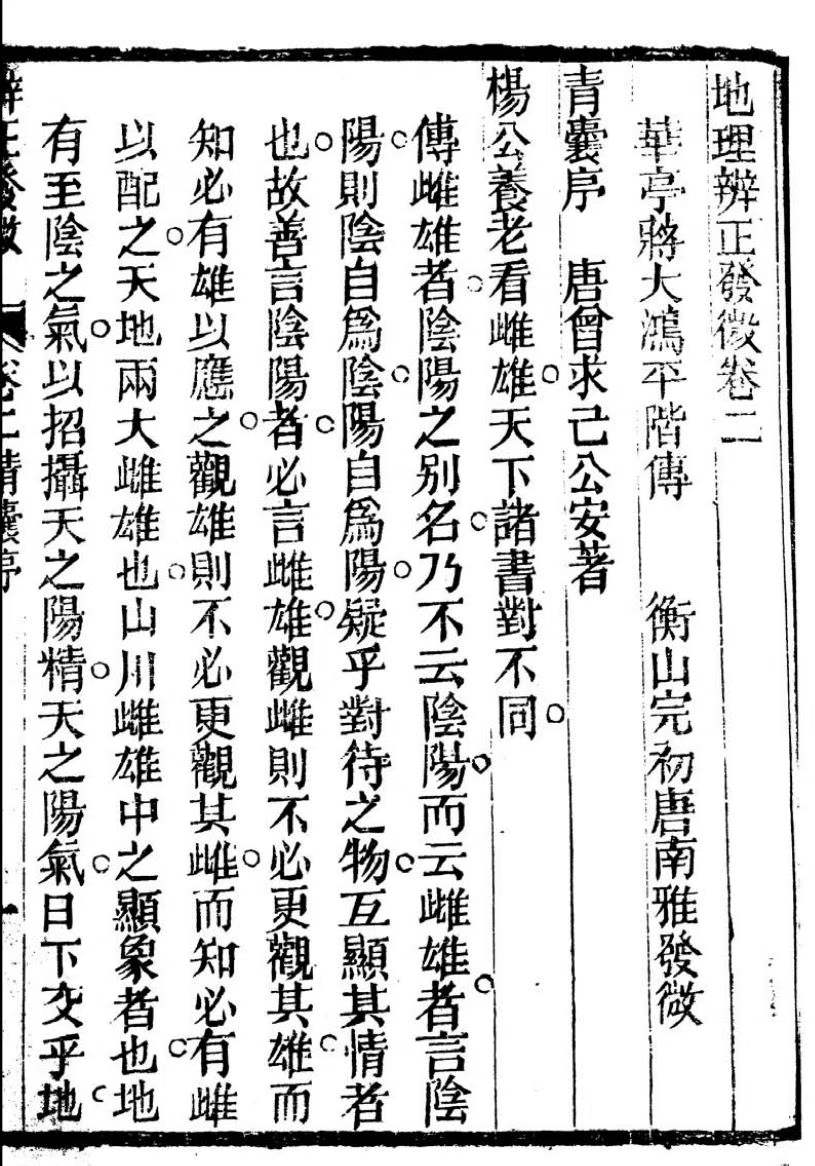 地理辨正發微卷二
華亭蔣大鴻平階傳　衡山完初唐南雅發微
青囊序　唐曾求己公安著
楊公養老看雌雄天下諸書對不同
傳雌雄者陰陽之别名乃不云陰陽而云雌雄者言陰
陽則陰自爲陰陽自爲陽疑乎對待之物互顯其情者
也故善言陰陽者必言雌雄觀雌則不必更觀其雄而
知必有雄以應之觀雄則不必更觀其雌而知必有雌
以配之天地兩大雌雄也山川雌雄中之顯象者也地
有至陰之氣以招攝天之陽精天之陽氣日下交乎地
辨正發微　卷二青囊序　一